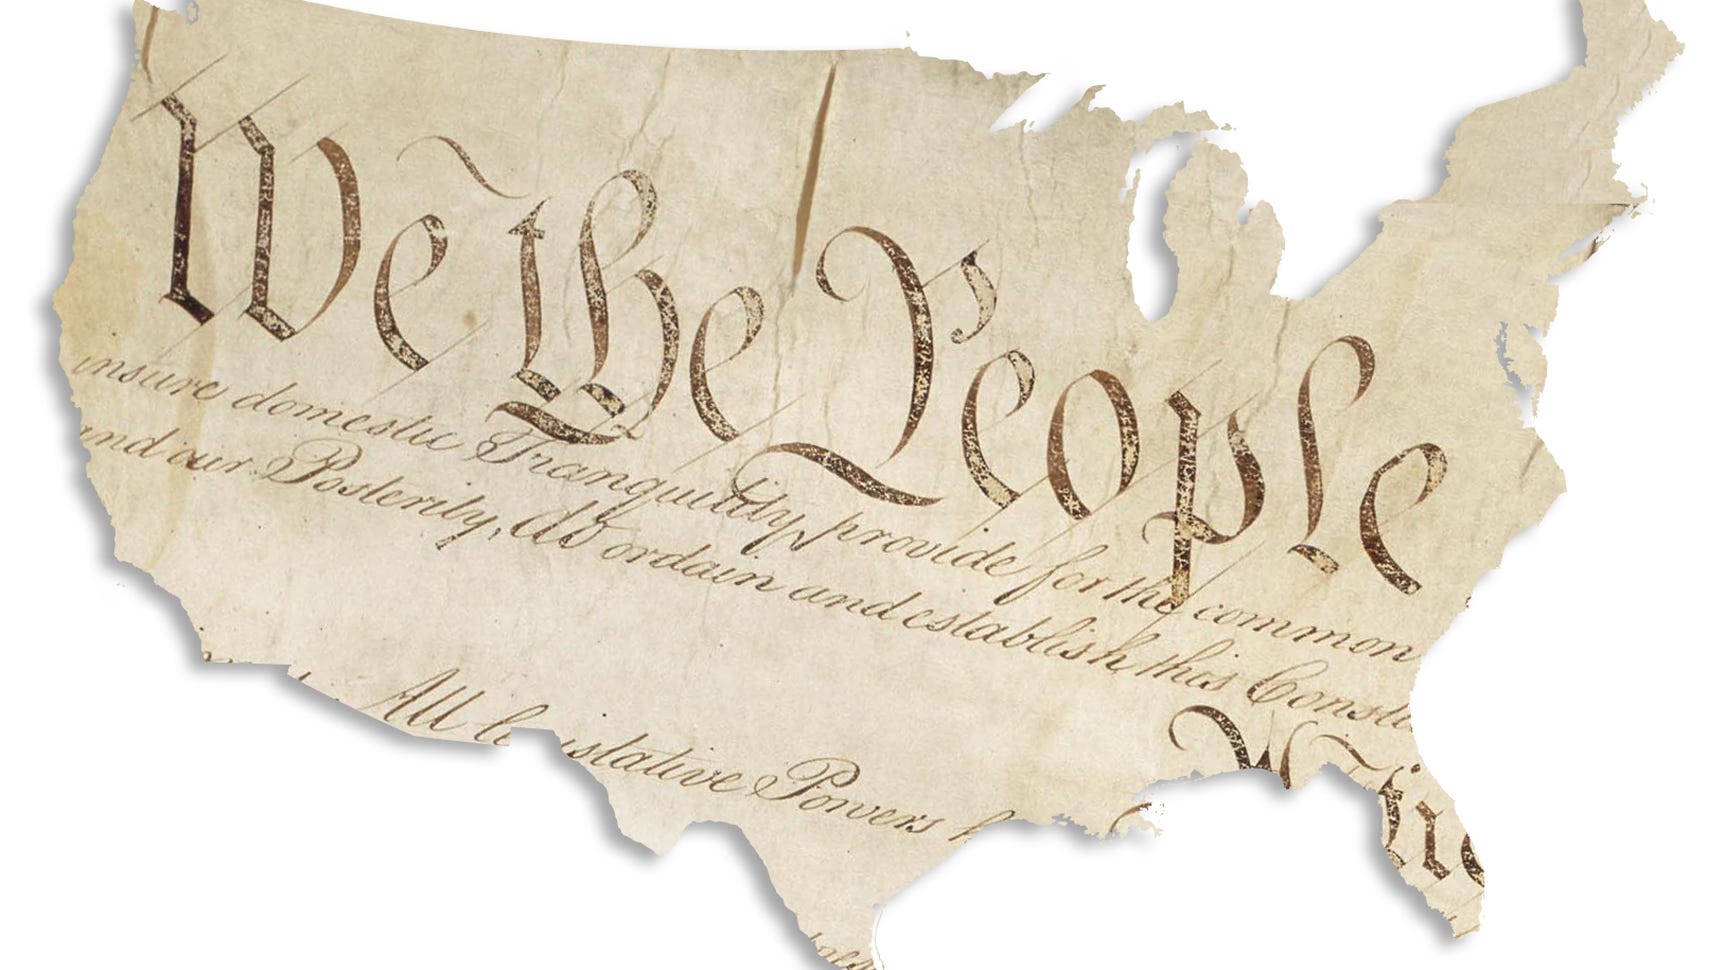 We the People
insure domestic Tranquility, provide for the common
and our Posterity, do ordain and establish this Const
All legislative Powers h